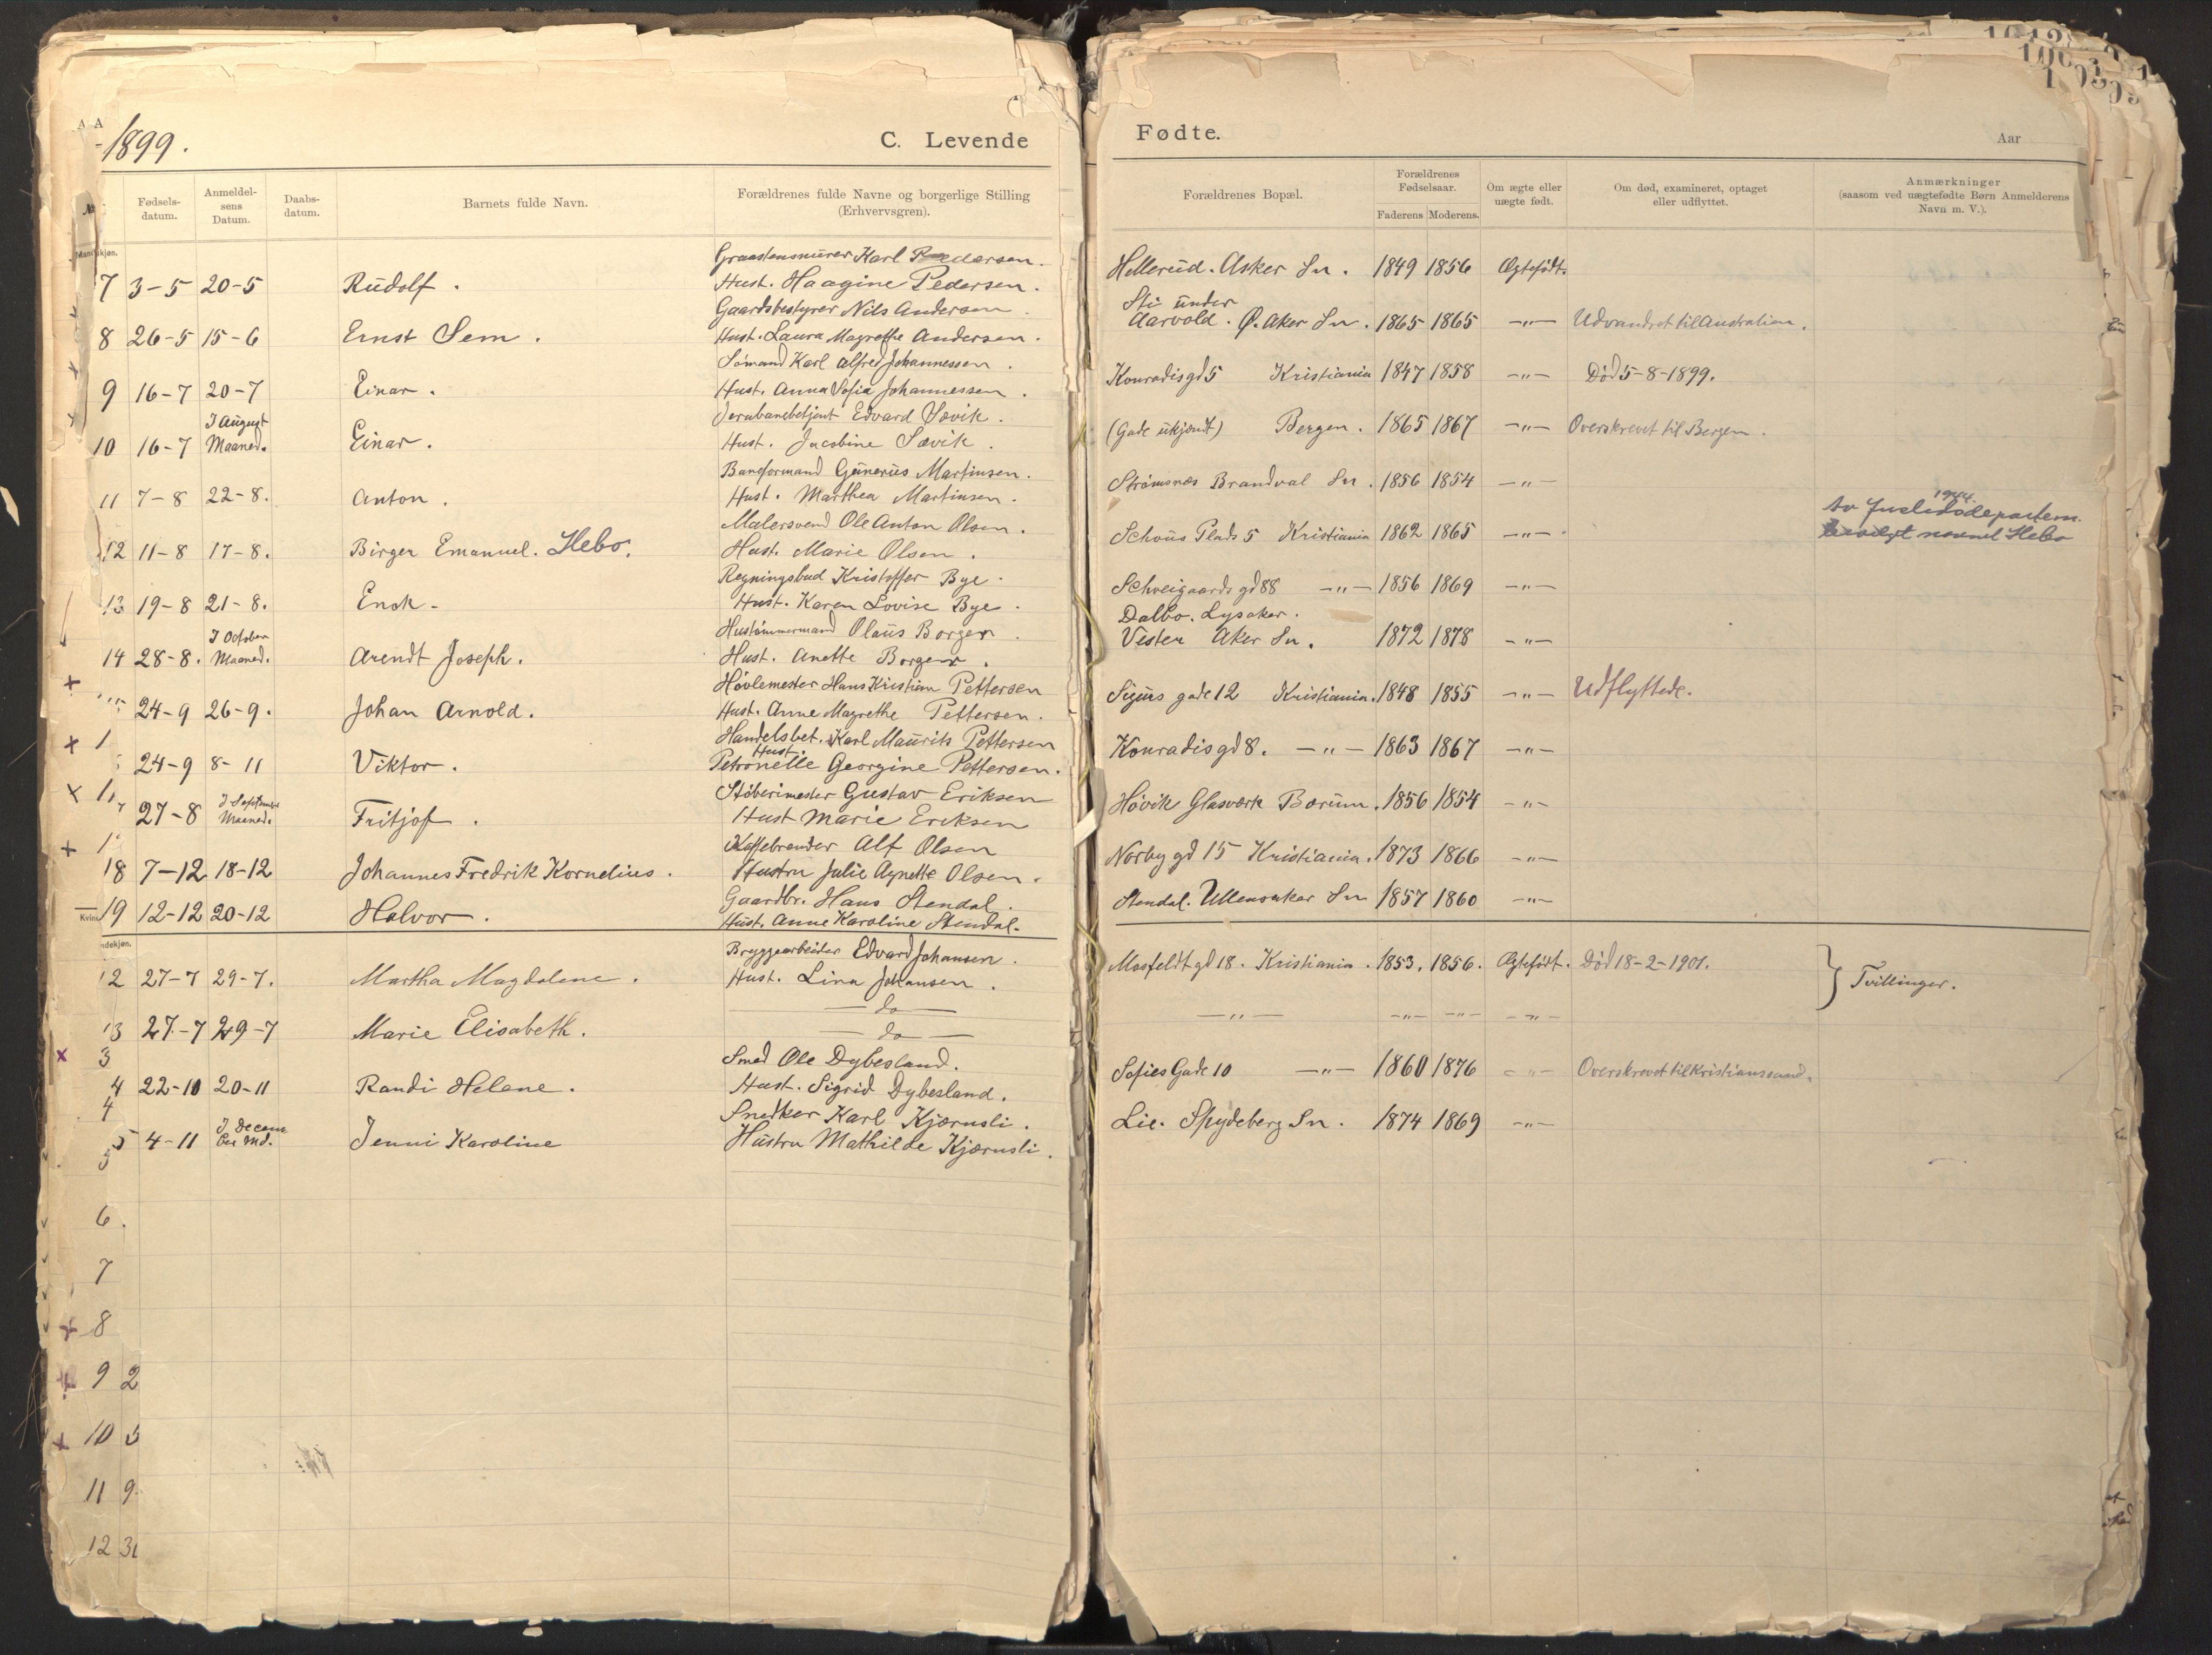 1899.
C. Levende Fødte.
Aar
Fødsels-datum. Anmeldel-sens Datum. Daabs-datum. Barnets fulde Navn. Forældrenes fulde Navne og borgerlige Stilling (Erhvervsgren). Forældrenes Bopæl. Forældrenes Fødselsaar. Faderens Moderens. Om ægte eller uægte født. Om død, examineret, optaget eller udflyttet. Anmærkninger (saasom ved uægtefødte Børn Anmelderens Navn m. V.).
Graastensmurer Karl Pedersen.
7 3-5 20-5 Rudolf. Hust. Haagine Pedersen. Hellerud. Asker Sn. 1849 1856 Ægtefødt.
Gaardsbestyrer Nils Andersen. Sti under
8 26-5 15-6 Ernst Sem. Hust. Laura Magrethe Andersen. Aarvold. Ø. Aker Sn. 1865 1865 -"- Udvandret til Australien.
Sømand Karl Alfred Johannessen.
9 16-7 20-7 Einar. Hust. Anna Sofia Johannessen. Konradisgd 5 Kristiania 1847 1858 -"- Død 5-8-1899.
I August Jernbanebetjent Edvard Søvik.
10 16-7 Maaned. Einar. Hust. Jacobine Søvik. (Gade ukjendt) Bergen. 1865 1867 -"- Overskrevet til Bergen.
Baneformand Gunerius Martinsen.
11 7-8 22-8. Anton. Hust. Marthea Martinsen. Strømsnæs Brandval Sn. 1856 1854 -"-
Malersvend Ole Anton Olsen. 1944. Av Justisdodepartem.
12 11-8 17-8. Birger Emanuel. Hebo. Hust. Marie Olsen. Schous Plads 5 Kristiania 1862 1865 -"- bevilgt navnet Hebo
Regningsbud Kristoffer Bye.
13 19-8 21-8. Enok- Hust. Karen Lovise Bye. Schweigaards gd 88 -"- 1856 1869 -"-
I October Hustømmermand Olaus Borgen. Dalbo. Lysaker.
14 28-8. Maaned. Arendt Joseph. Hust. Anette Borgen. Vester Aker Sn. 1872 1878 -"-
Høvlemester Hans Kristian Pettersen
24-9 26-9. Johan Arnold. Hust. Anne Magrethe Pettersen. Sigurs gade 12 Kristiania. 1848 1855 -"- Udflyttede.
Handelsbet. Karl Maurits Pettersen
24-9 8-11 Viktor. Hust. Petronelle Georgine Pettersen. Konradisgd 8. -"- 1863 1867 -"-
I September Støberimester Gustav Eriksen
27-8 Maaned. Fritjof. Hust Marie Eriksen Høvik Glasværk Bærum. 1856 1854 -"-
Kaffebrænder Alf Olsen
18 7-12 18-12 Johannes Fredrik Kornelius. Hustru Julie Agnette Olsen. Norby gd 15 Kristiania. 1873 1866 -"-
Gaardbr. Hans Stendal.
19 12-12 20-12 Halvor. Hust. Anne Karoline Stendal. Stendal. Ullensaker Sn 1857 1860 -"-
Bryggearbeider Edvard Johansen.
12 27-7 29-7. Martha Magdalene. Hust. Lina Johansen. Mosfeldt gd 18. Kristiania. 1853. 1856. Ægtefødt. Død 18-2-1901. } Tvillinger.
- do -
13 27-7 29-7 Marie Elisabeth. - do - -"- -"- -"- -"-
3 Smed Ole Dybesland.
4 22-10 20-11 Randi Helene. Hust. Sigrid Dybesland. Sofies Gade 10 -"- 1860 1876 -"- Overskrevet til Kristianssand.
4 I Decem Snedker Karl Kjærnsli.
5 4-11 ber Md. Jenni Karoline Hustru Mathilde Kjærnsli. Lie. Spydeberg Sn. 1874 1869 -"-
5
6.
7
8
9 2
10
11 9
12 31